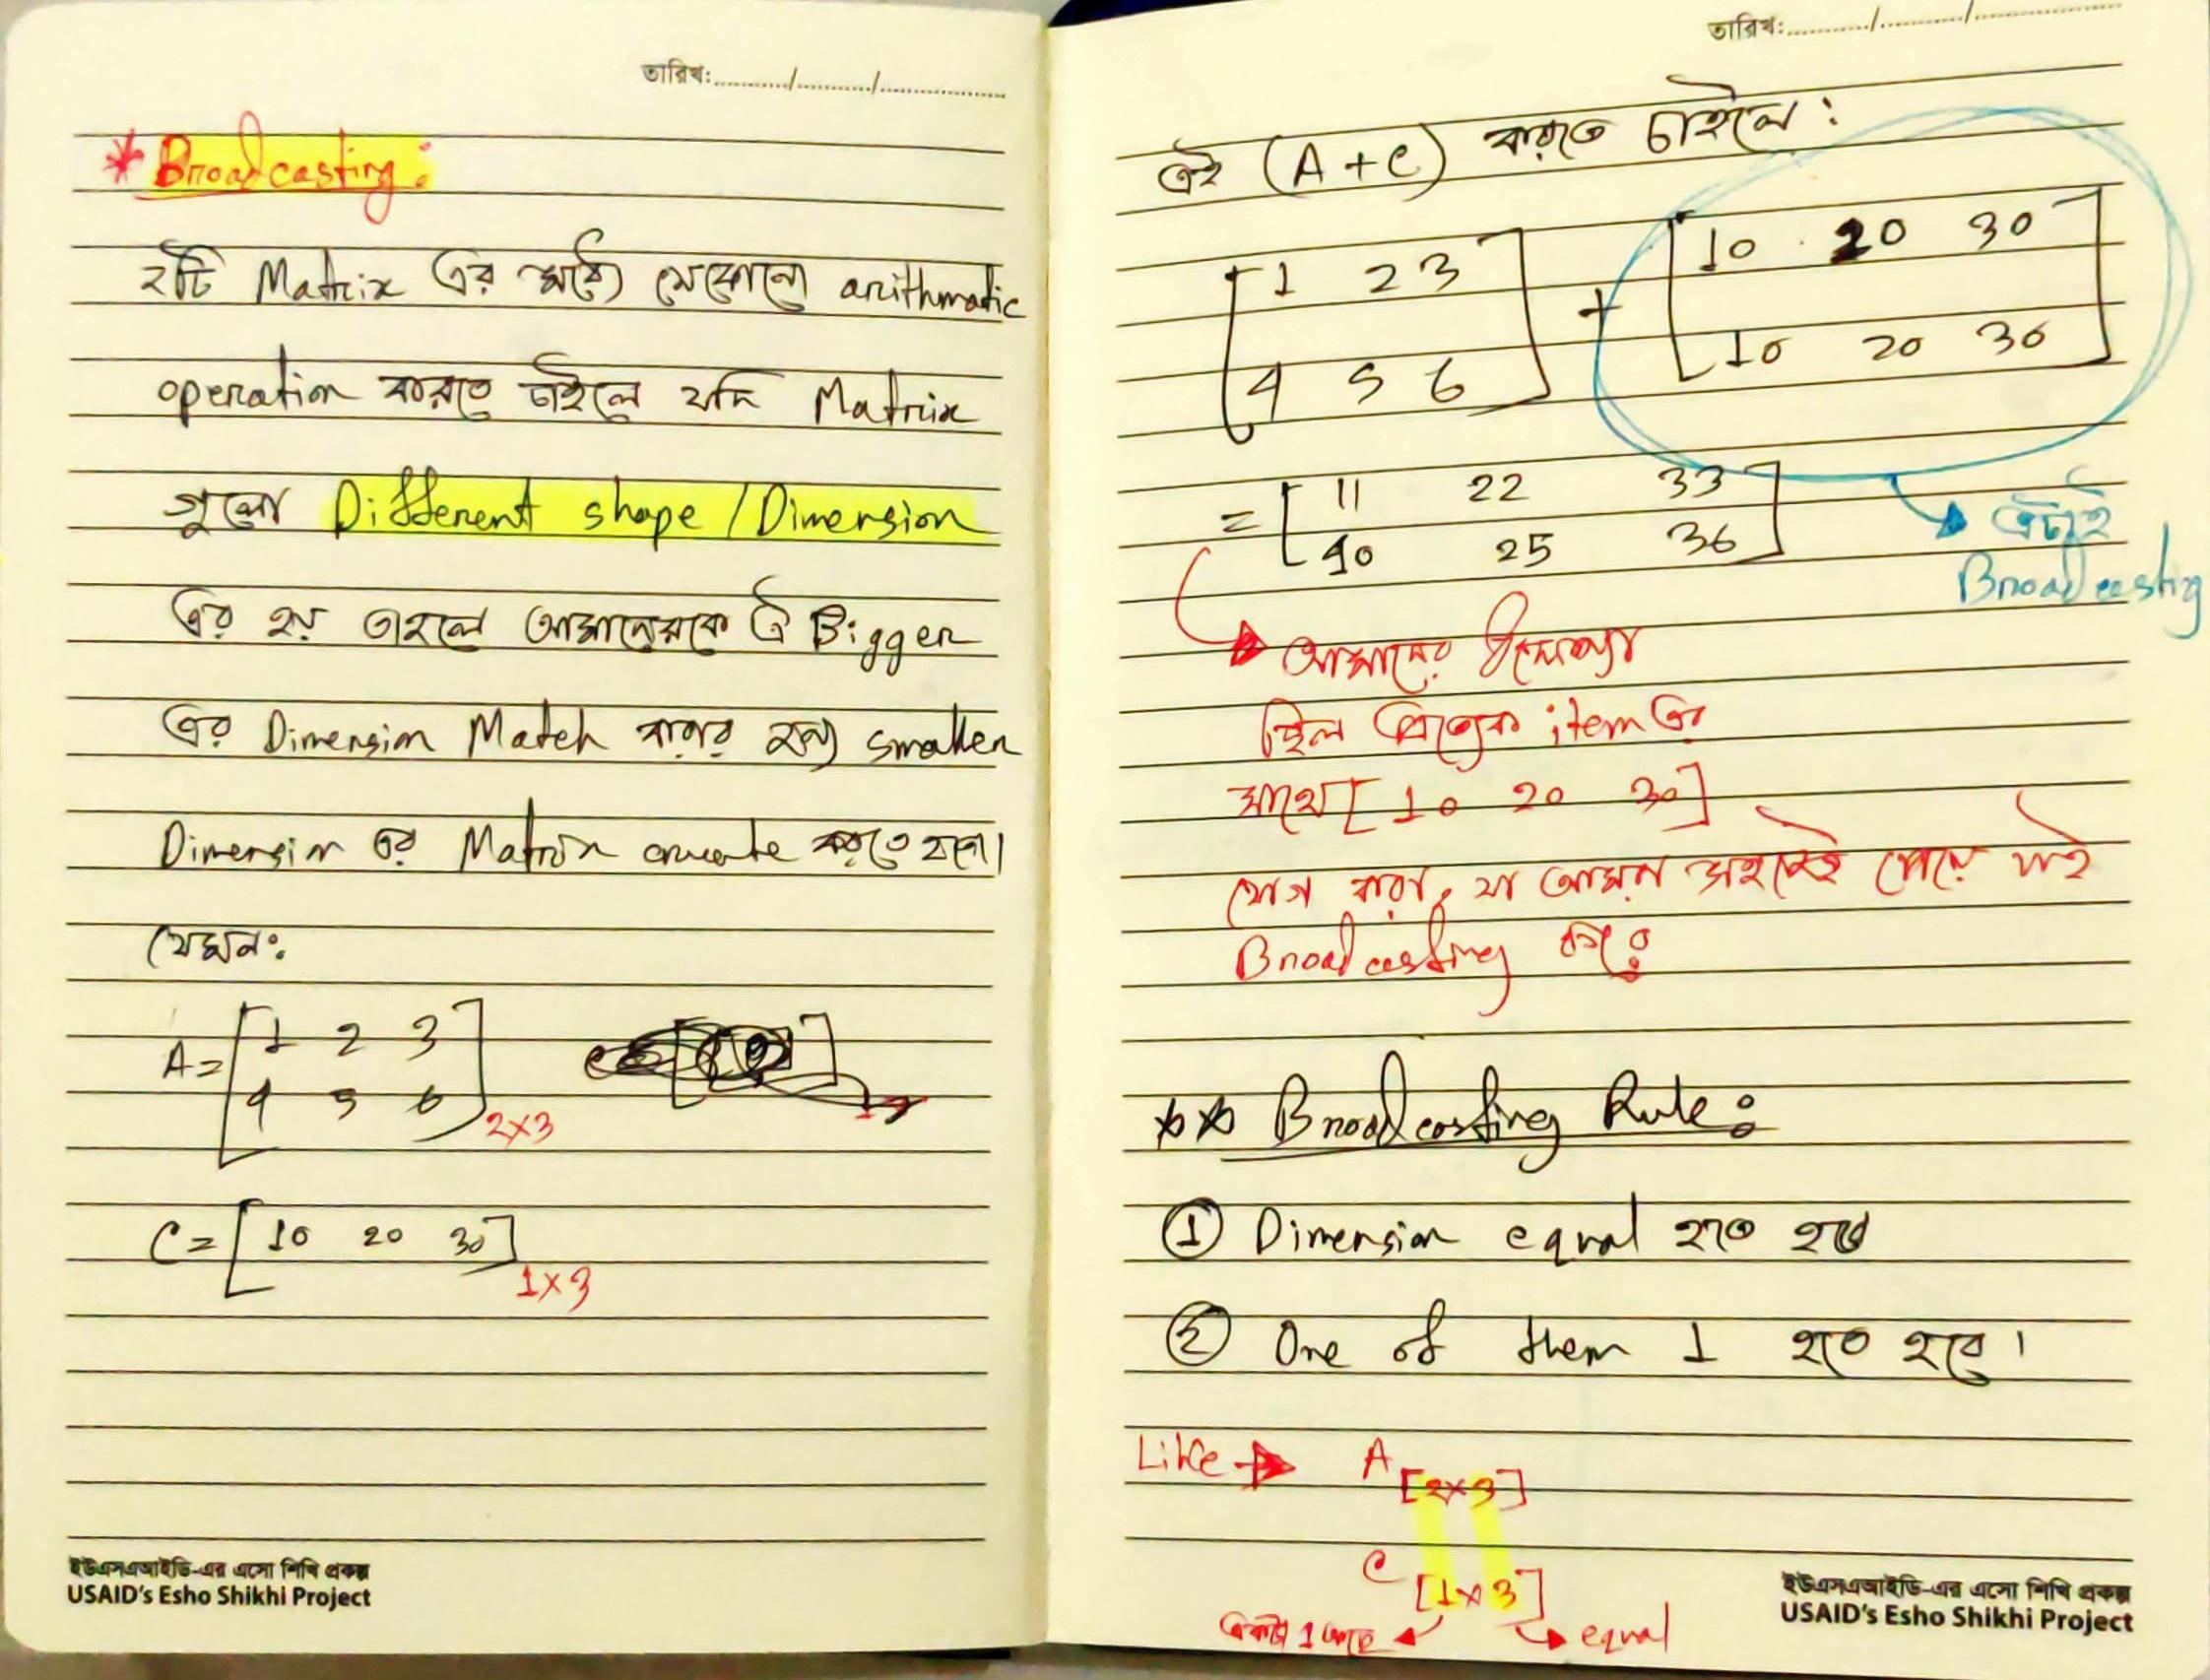 তারিখ:............/............/....................
* Broadcasting:
২টি Matrix এর মধ্যে যেকোনো arithmatic
operation করতে চাইলে যদি Matrix
গুলো Different shape / Dimension
এর হয় তাহলে আমাদেরকে ঐ Bigger
এর Dimension Match করার জন্য smaller
Dimension এর Matrix create করতে হবে।
যেমন:
A = [ 1 2 3
4 5 6 ] 2×3
C = [ 10 20 30 ] 1×3
ইউএসএআইডি-এর এসো শিখি প্রকল্প
USAID's Esho Shikhi Project
তারিখ:............/............/....................
এই (A + C) করতে চাইলে:
[ 1 2 3
4 5 6 ] + [ 10 20 30
10 20 30 ]
= [ 11 22 33
40 25 36 ]
এটাই
Broadcasting
আমাদের উদ্দেশ্য
ছিল প্রত্যেক item এর
সাথে [ 10 20 30 ]
যোগ করা, যা আমরা সহজেই পেয়ে যাই
Broadcasting করে
** Broadcasting Rule:
① Dimension equal হতে হবে
② One of them 1 হতে হবে।
Like → A [2×3]
C [1×3]
একটা 1 আছে equal
ইউএসএআইডি-এর এসো শিখি প্রকল্প
USAID's Esho Shikhi Project